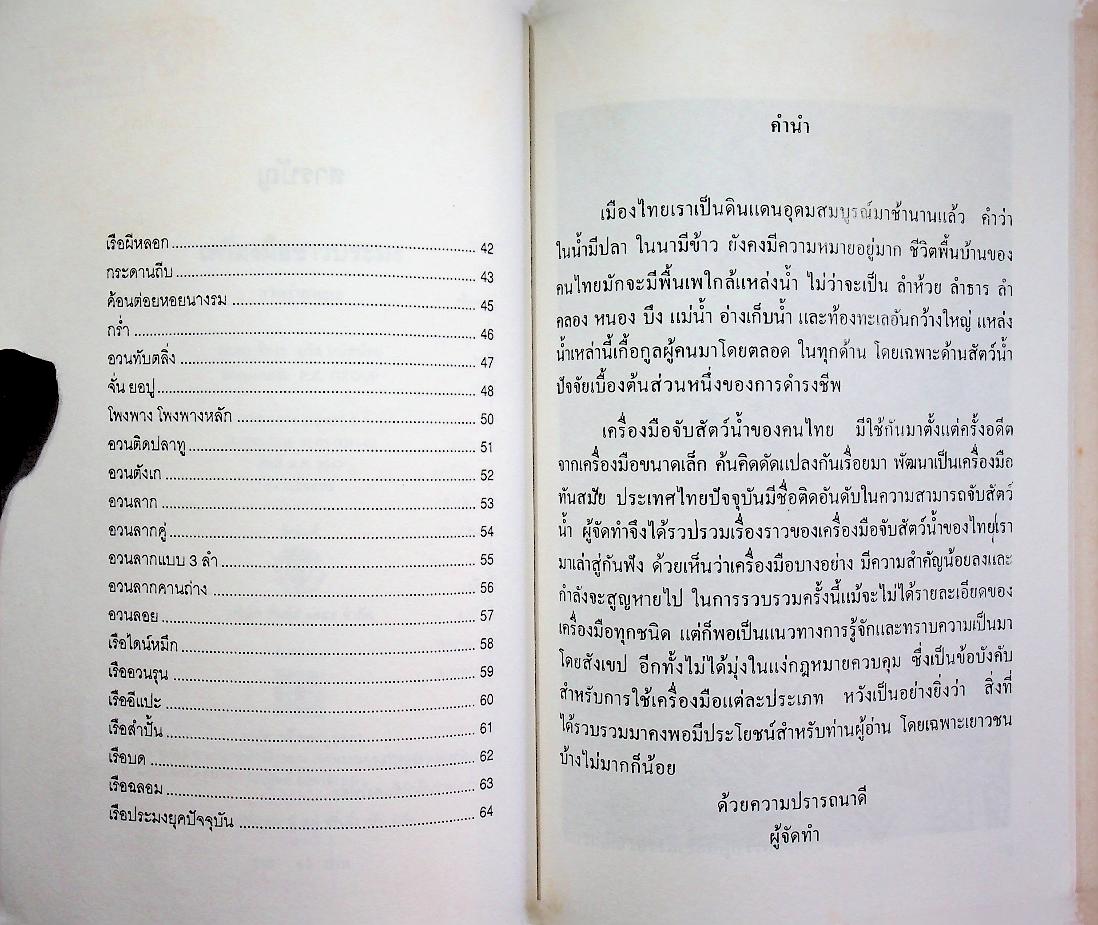 เรือผีหลอก ........ 42
กระดานถีบ ........ 43
ค้อนต่อยหอยนางรม ........ 45
กร่ำ ........ 46
อวนทับตลิ่ง ........ 47
จั่น ยอปู ........ 48
โพงพาง โพงพางหลัก ........ 50
อวนติดปลาทู ........ 51
อวนตังเก ........ 52
อวนลาก ........ 53
อวนลากคู่ ........ 54
อวนลากแบบ 3 ลำ ........ 55
อวนลากคานถ่าง ........ 56
อวนลอย ........ 57
เรือไดน์หมึก ........ 58
เรืออวนรุน ........ 59
เรืออีแปะ ........ 60
เรือสำปั้น ........ 61
เรือบด ........ 62
เรือฉลอม ........ 63
เรือประมงยุคปัจจุบัน ........ 64
คำนำ
เมืองไทยเราเป็นดินแดนอุดมสมบูรณ์มาช้านานแล้ว คำว่า
ในน้ำมีปลา ในนามีข้าว ยังคงมีความหมายอยู่มาก ชีวิตพื้นบ้านของ
คนไทยมักจะมีพื้นเพใกล้แหล่งน้ำ ไม่ว่าจะเป็น ลำห้วย ลำธาร ลำ
คลอง หนอง บึง แม่น้ำ อ่างเก็บน้ำ และท้องทะเลอันกว้างใหญ่ แหล่ง
น้ำเหล่านี้เกื้อกูลผู้คนมาโดยตลอด ในทุกด้าน โดยเฉพาะด้านสัตว์น้ำ
ปัจจัยเบื้องต้นส่วนหนึ่งของการดำรงชีพ
เครื่องมือจับสัตว์น้ำของคนไทย มีใช้กันมาตั้งแต่ครั้งอดีต
จากเครื่องมือขนาดเล็ก ค้นคิดดัดแปลงกันเรื่อยมา พัฒนาเป็นเครื่องมือ
ทันสมัย ประเทศไทยปัจจุบันมีชื่อติดอันดับในความสามารถจับสัตว์
น้ำ ผู้จัดทำจึงได้รวปรวมเรื่องราวของเครื่องมือจับสัตว์น้ำของไทยเรา
มาเล่าสู่กันฟัง ด้วยเห็นว่าเครื่องมือบางอย่าง มีความสำคัญน้อยลงและ
กำลังจะสูญหายไป ในการรวบรวมครั้งนี้แม้จะไม่ได้รายละเอียดของ
เครื่องมือทุกชนิด แต่ก็พอเป็นแนวทางการรู้จักและทราบความเป็นมา
โดยสังเขป อีกทั้งไม่ได้มุ่งในแง่กฎหมายควบคุม ซึ่งเป็นข้อบังคับ
สำหรับการใช้เครื่องมือแต่ละประเภท หวังเป็นอย่างยิ่งว่า สิ่งที่
ได้รวบรวมมาคงพอมีประโยชน์สำหรับท่านผู้อ่าน โดยเฉพาะเยาวชน
บ้างไม่มากก็น้อย
ด้วยความปรารถนาดี
ผู้จัดทำ